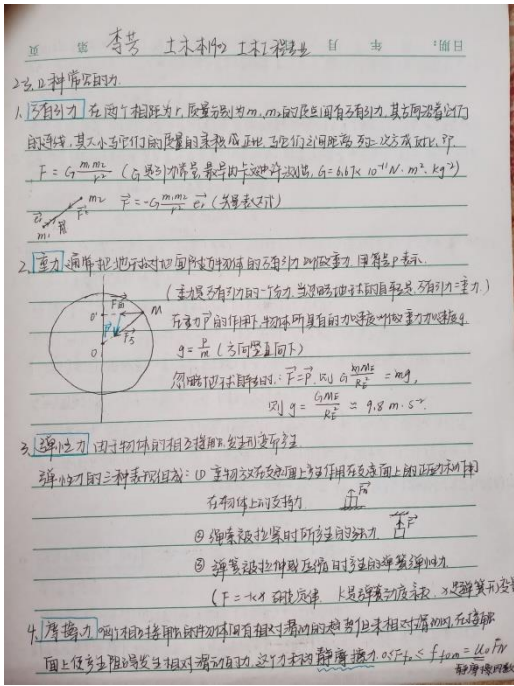 页 第 年 月 日期:
李芳 土木本1902 土木工程专业
2.3.1 几种常见的力
1. 万有引力 在两个相距为r,质量分别为m₁,m₂的质点间有万有引力,其方向沿着它们
的连线,其大小与它们的质量的乘积成正比,与它们之间距离r的二次方成反比,即
F = G m₁m₂/r² (G是引力常量,最早由卡文迪许测出,G=6.67×10⁻¹¹N·m²·kg⁻²)
m₂ F⃗ = -G m₁m₂/r² e⃗r (矢量表达式)
e⃗r F⃗
m₁
2. 重力 通常把地球对地面附近物体的万有引力叫做重力,用符号P表示.
(重力是万有引力的一个分力,当忽略地球的自转时,万有引力=重力.)
O' M
O
在重力P⃗的作用下,物体所具有的加速度叫做重力加速度g.
g = P/m (方向竖直向下)
忽略地球自转的∴F⃗=P⃗,则 G mME/RE² = mg,
则 g = GME/RE² ≈ 9.8 m·s⁻².
3. 弹性力 由于物体的相互接触,发生形变而产生
弹性力的三种表现组成: (1) 重物放在支撑面上产生作用在支撑面上的正压力和作用
在物体上的支持力.
② 绳索被拉紧时所产生的张力. F⃗
③ 弹簧被拉伸或压缩时产生的弹簧弹性力.
(F = -kx 胡克定律 k是弹簧劲度系数, x是弹簧形变
4. 摩擦力 两个相互接触的物体间有相对滑动的趋势但未相对滑动时,在接触
面上便产生阻碍发生相对滑动的力,这个力称为静摩擦力. 0≤Ff0≤Ff0m=μ₀FN
静摩擦因数